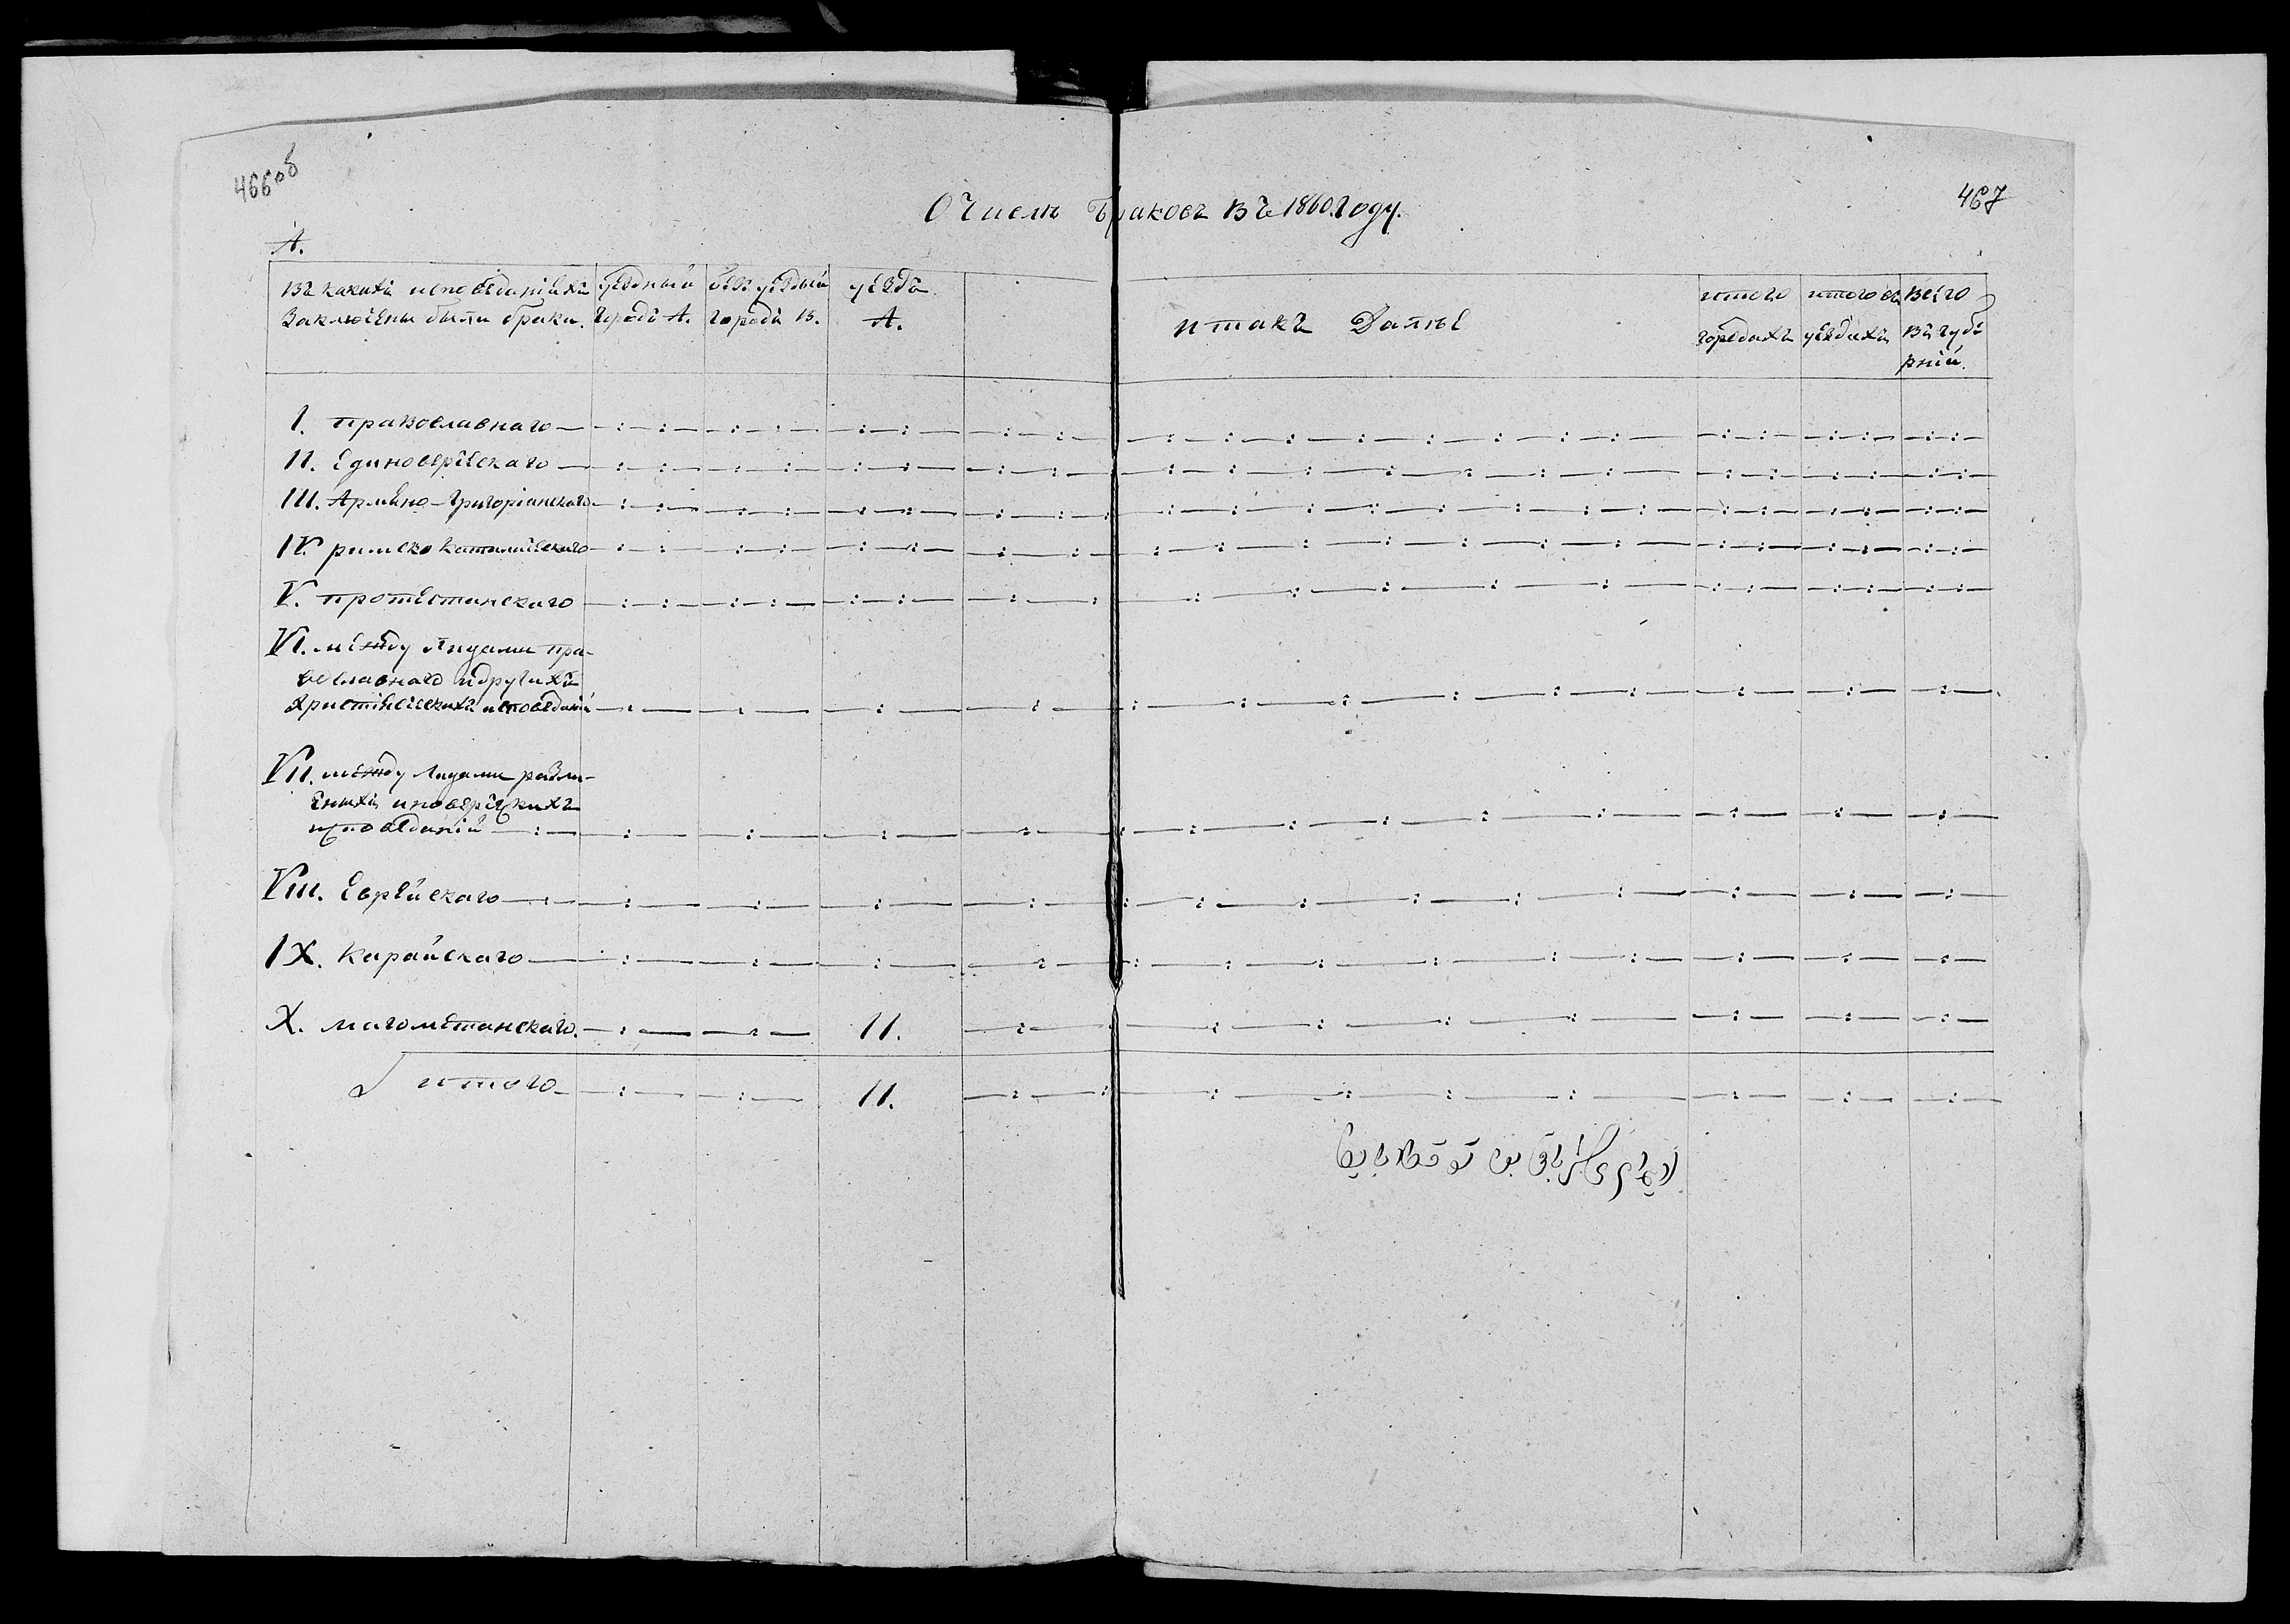 466 об
467
О числѣ Браковъ въ 1860. году.
А.
въ какихъ исповѣданіяхъ заключены были браки.
уѣздный городъ А.
безъуѣздный городъ В.
уѣздъ А.
и такъ Далѣе
итого городахъ
итого въ уѣздахъ
всего въ губерній.
I. православнаго
II. Единоверческаго
III. Армяно-Григоріанскаго
IV. римско католическаго
V. протестанскаго
VI. между Лицами пра-
вославнаго и других
Христіанских исповѣданій
VII. между Лицами разли-
чныхъ иноверческихъ
исповѣданій
VIII. Еврейскаго
IX. Карайскаго
X. магометанскаго. 11.
итого 11.